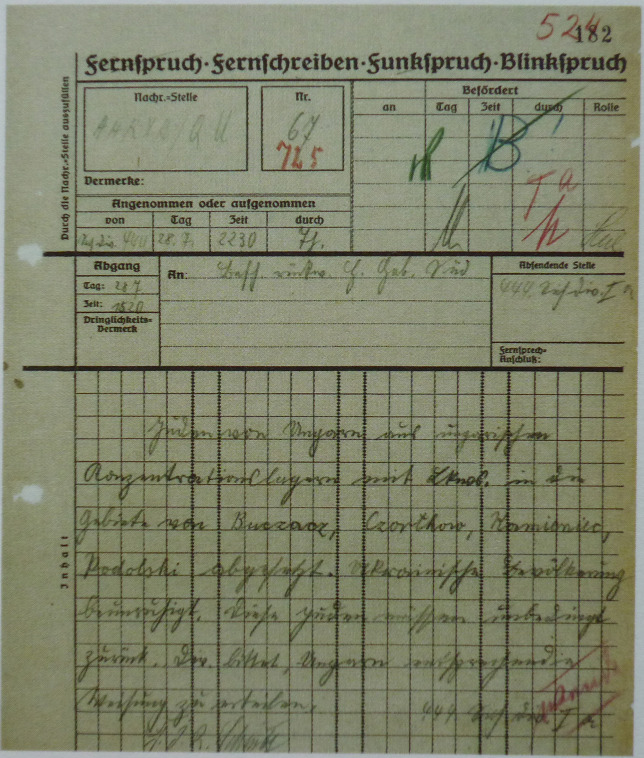 524
182
Fernspruch·Fernschreiben·Funkspruch·Blinkspruch
Durch die Nachr.=Stelle auszufüllen
Nachr.=Stelle
Nr.
67
725
Vermerke:
Befördert
an Tag Zeit durch Rolle
Ta
Angenommen oder aufgenommen
von Tag Zeit durch
444 28.7. 2230
Abgang
Tag: 28.7
Zeit: 1520
Dringlichkeits=
Vermerk
An: Befh. rückw. H. Geb. Süd
Absendende Stelle
444. Sich. Div. Ia
Fernsprech=
Anschluß:
Inhalt
Juden von Ungarn aus ungarischen
Konzentrationslagern mit Lkws. in die
Gebiete von Buczacz, Czortkow, Kamieniec,
Podolski abgesetzt. Ukrainische Bevölkerung
beunruhigt. Diese Juden müssen unbedingt
zurück. Div. bittet, Ungarn entsprechende
Weisung zu erteilen.
444. Sich. Div. Ia